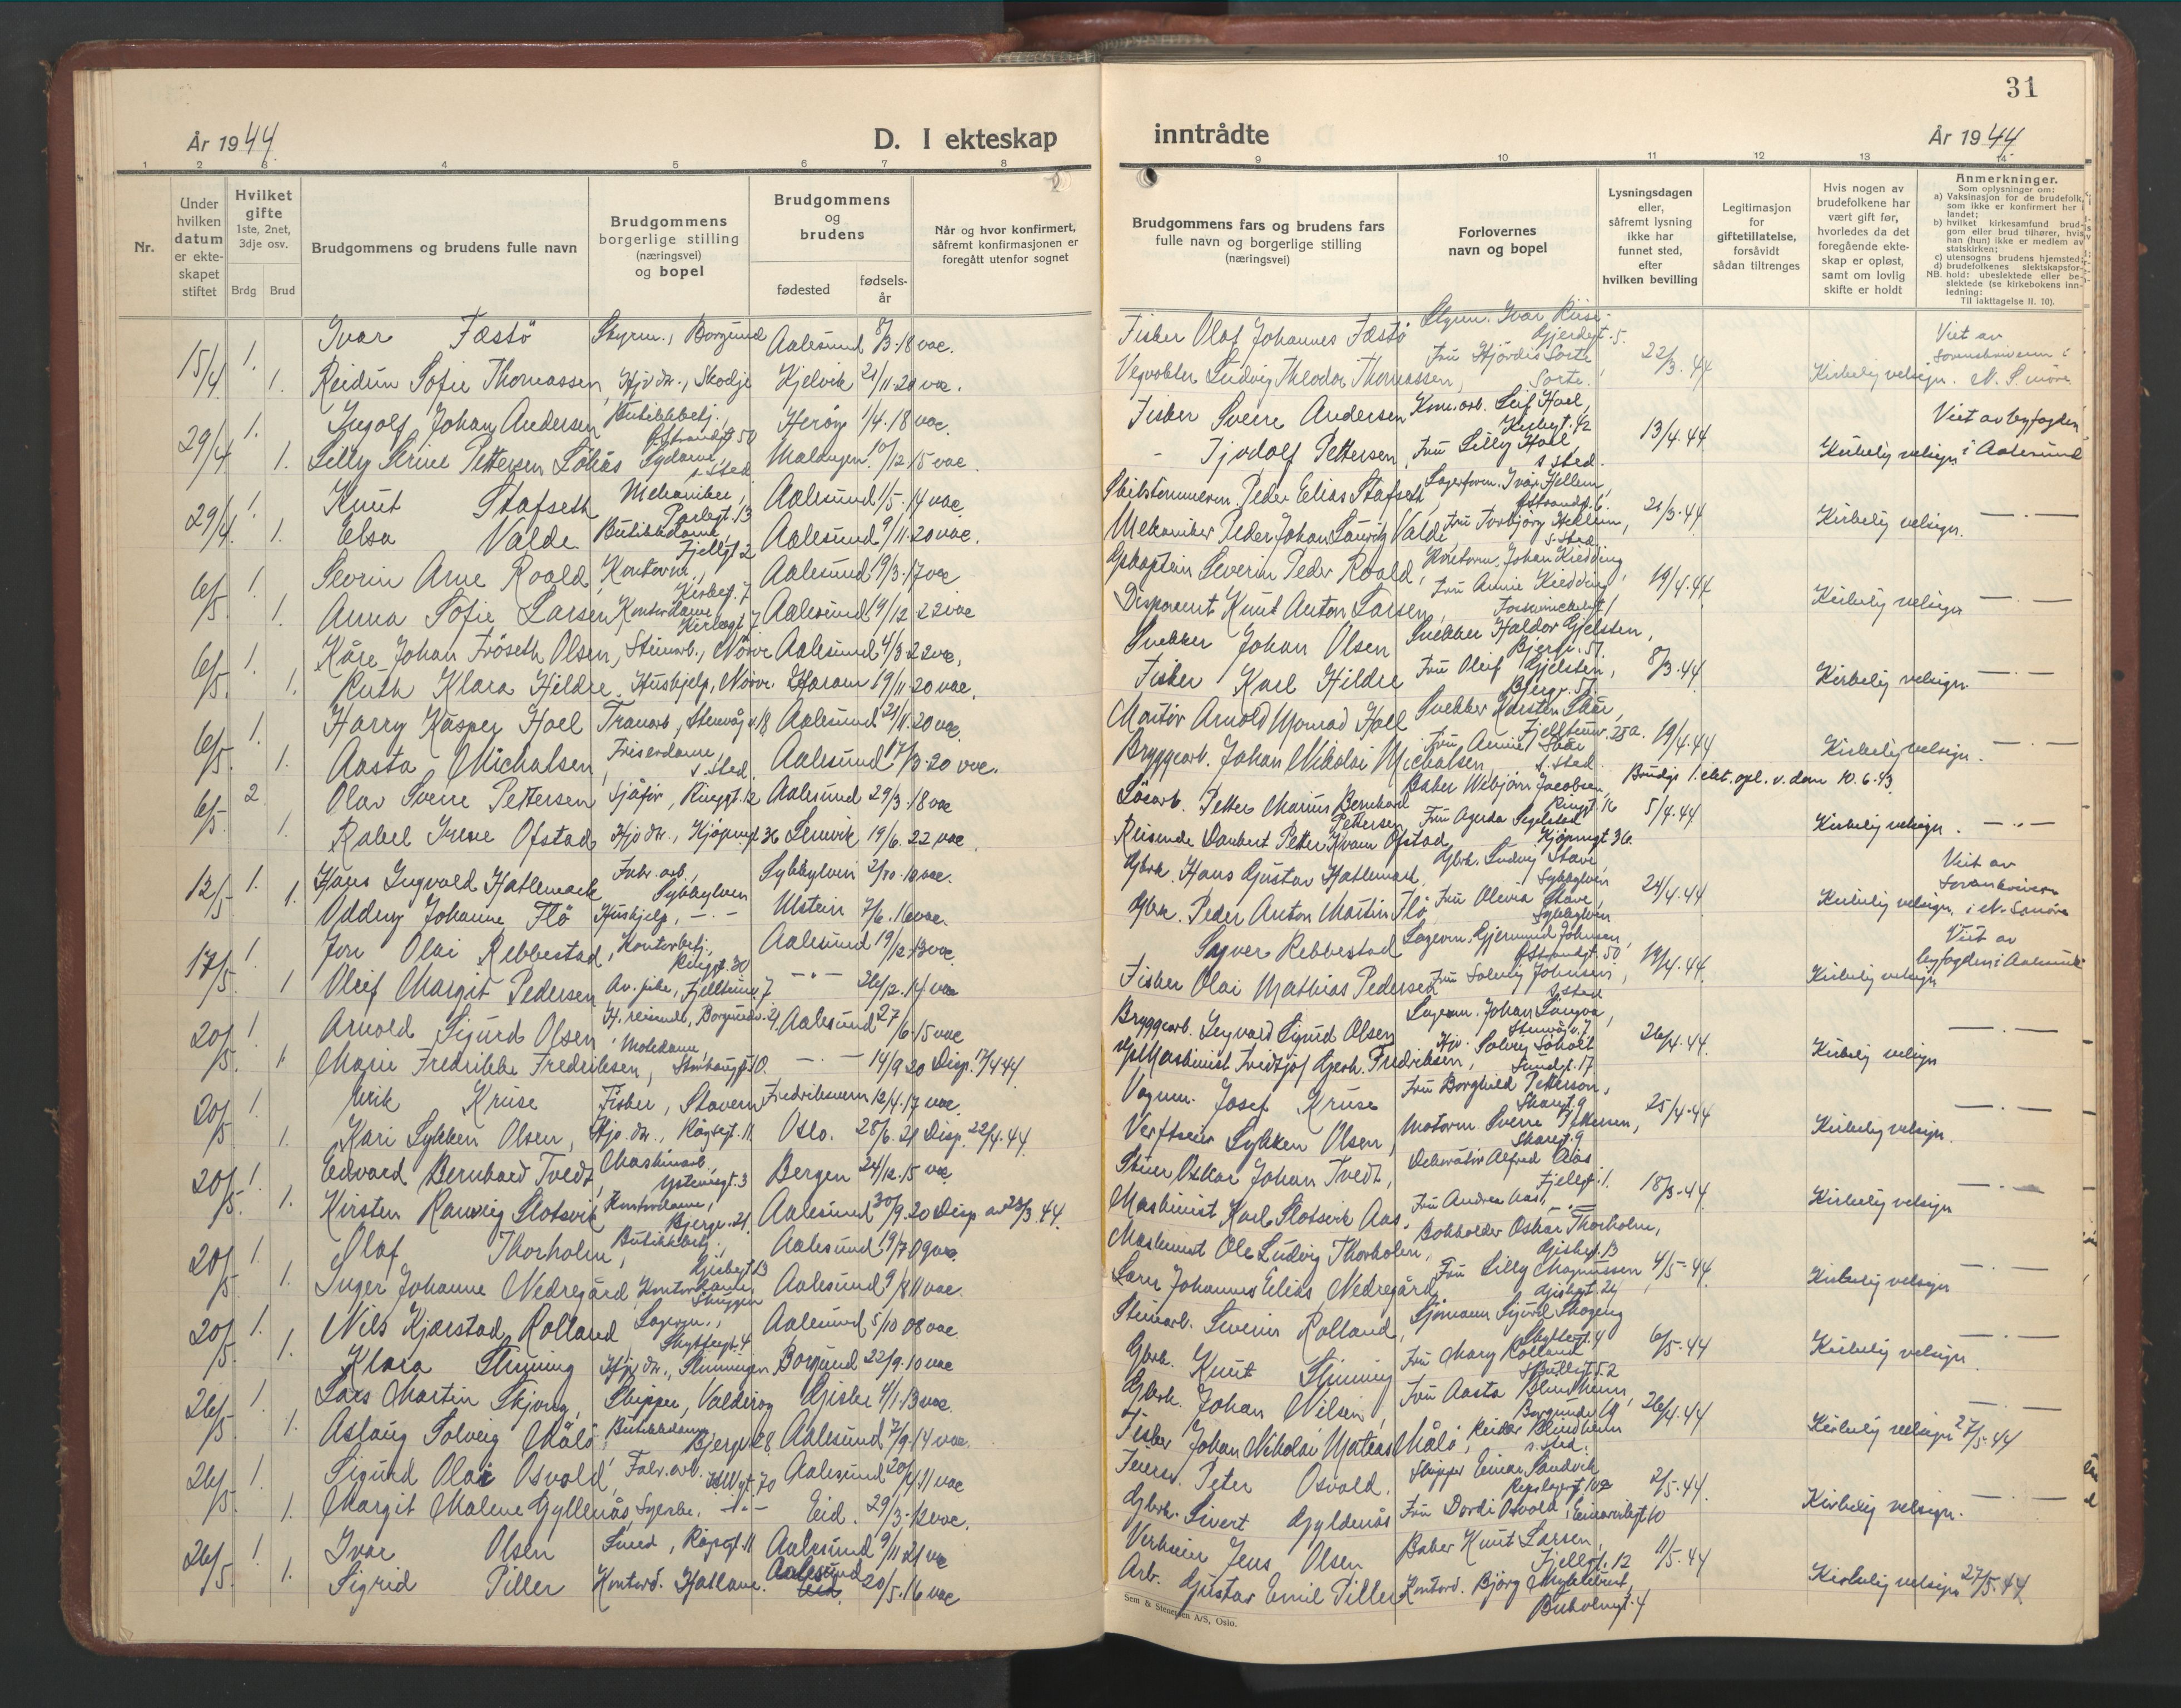 31
År 1944
D. I ekteskap
inntrådte
År 1944
1 2 3 4 5 6 7 8
9 10 11 12 13 14
Nr.
Under hvilken datum er ekteskapet stiftet
Hvilket gifte 1ste, 2net, 3dje osv.
Brdg
Brud
Brudgommens og brudens fulle navn
Brudgommens borgerlige stilling (næringsvei) og bopel
Brudgommens og brudens
fødested
fødselsår
Når og hvor konfirmert, såfremt konfirmasjonen er foregått utenfor sognet
Brudgommens fars og brudens fars fulle navn og borgerlige stilling (næringsvei)
Forlovernes navn og bopel
Lysningsdagen eller, såfremt lysning ikke har funnet sted, efter hvilken bevilling
Legitimasjon for giftetillatelse, forsåvidt sådan tiltrenges
Hvis nogen av brudefolkene har vært gift før, hvorledes da det foregående ekteskap er opløst, samt om lovlig skifte er holdt
Anmerkninger.
Som oplysninger om:
a) Vaksinasjon for de brudefolk, som ikke er konfirmert her i landet;
b) hvilket kirkesamfund brudgom eller brud tilhører, hvis han (hun) ikke er medlem av statskirken;
c) utensogns brudens hjemsted;
d) brudefolkenes slektskapsforhold: ubeslektede eller beslektede (se kirkebokens innledning:
NB.
Til iakttagelse II. 10).
15/4 1. Ivar Fæstö Styrm., Borgund Aalesund 8/3-18 vac.
1. Reidun Sofie Thomassen, Hjv. dr., Skodje Kjelvik 21/11-20 vac.
29/4 1. Ingolf Johan Andersen Butikkbetj., Herøy 1/4-18 vac.
1. Lilly Strine Pettersen Sydame, s. sted 10/12-15 vac.
29/4 1. Knut Stafseth Mekaniker, Aalesund 1/5-14 vac.
1. Elsa Valde Butikkdame, Fjellgt 2 Aalesund 9/11-20 vac.
6/5. 1. Severin Arne Roald, Kontorm., Kirkegt. 7 Aalesund 19/3-17 vac
1. Anna Sofie Larsen, Kontordame, Kirkegt 7 Aalesund 19/12 22 vac
6/5. 1. Kåre Johan Fröseth Olsen, Steinarb., Nörve Aalesund 4/3-22 vac.
1. Ruth Klara Hildre, Hushjelp, Nörve Haram 19/11-20 vac.
6/5. 1. Harry Kasper Hoel Tranarb., Stenvåg v. 18 Aalesund 21/11-20 vac.
1. Aasta Michalsen, Friserdame, s. sted. Aalesund 17/3-20 vac.
6/5. 2. Olav Sverre Pettersen Sjåfør, Ringgt. 12 Aalesund 29/3-18 vac
1. Rakel Irene Ofstad Hjv dr., Kjöpmgt 36 Lenvik 19/6-22 vac.
12/5 1. Hans Ingvald Hatlemark Fabr. arb., Sykkylven Sykkylven 2/10-10 vac.
1. Oddny Johanne Flö Hushjelp, — . — Ulstein 7/6-16 vac.
17/5 1. Jon Olai Rebbestad, Kontorbetj., Ringgt. 30 Aalesund 19/12-13 vac.
1 Oleif Margit Pedersen Av. pike, Fjelltunv 7 — " — 26/12-14 vac
20/5. 1. Arnold Sigurd Olsen H. reisende, Borgundv. 21 Aalesund 27/6-15 vac
1. Marie Fredrikke Fredriksen, Motedame, — . — 14/9 20 Disp. 17/4 44
20/5 1. Erik Kruse Fisker, Stavern Fredriksvern 12/4-17 vac.
1. Kari Sykken Olsen, Hjv. dr., Rögsgt. 11 Oslo. 28/6-21 Disp. 22/4-44.
20/5. 1. Edvard Bernhard Tvedt, Maskinarb., Bergen 24/12-15 vac.
1. Kirsten Ranveig Slotsvik Kontordame, Bjergv. 21. Aalesund 30/9-20 Disp av 23/3 44
20/5. 1. Olaf Thorholm, Butikkbetj., Aalesund 19/7 09 vac.
1. Inger Johanne Nedregård, Kontordame Skuggen Aalesund 9/8 11 vac.
20/5. 1. Nils Kjærstad Rolland Lagerm., Skyttergt. 4 Aalesund 5/10 08 vac.
1. Klara Slinning Hjv. dr., Slinningen Borgund 22/9-10 vac
26/5 1. Lars Martin Skjong, Skipper, Valderøy Giske 4/1-13 vac.
1. Aslaug Solveig Målö Butikkdame Bjergv 28 Aalesund 7/9-14 vac.
26/5. 1. Sigurd Olai Osvold, Fabr. arb. Aalesund 20/4 11 vac
1. Margit Malene Gyllenås, Syerske. — " — Eid. 29/3-12 vac.
26/5. 1. Ivar Olsen Smed, Rögsgt. 11 Aalesund 9/11 21 vac
1. Sigrid Piller Kontord. Hatlane. Aalesund 20/5-16 vac
Fisker Olaf Johannes Fæstö Styrm. Ivar Riise, Gjerdegt. 5.
Vegvokter Ludvig Theodor Thomassen, Fru Hjördis Sorte Sorte. 22/3-44 Kirkelig velsign. Viet av Sorenskriveren i N. S. møre
Fisker Sverre Andersen Kom. arb. Leif Hoel, Kirkegt. 42
— Tjodolf Pettersen, Fru Lilly Hoel, s. sted. 13/4-44 Kirkelig velsign Viet av byfogden i Aalesund
Skibstømmerm. Peder Elias Stafseth, Lagerform. Ivar Hellem,
Mekaniker Peder Johan Lauritz Valde Fru Torbjörg Hellem, s. sted 21/3-44 Kirkelig velsign. — . —
Gpkaptein Severin Peder Roald, Kontorm. Johan Kiedding,
Disponent Knut Anton Larsen, Fru Annie Kiedding 19/4-44 Kirkelig velsign — . —
Snekker Johan Olsen Snekker Haldor Gjelsten, Bjergv. 57.
Fisker Karl Hildre Fru Oleif Gjelsten, Bjergv. 57 8/3-44 Kirkelig velsign. — . —
Montör Arnold Monrad Hoel Snekker Karsten Skår, Fjelltunv. 25a.
Bryggearb. Johan Nikolai Michalsen, Fru Annie Skår s. sted 19/4-44 Kirkelig velsign. — . —
Lösarb. Petter Marius Bernhard Pettersen, Baker Webjörn Jacobsen, Ringgt. 16 Brudgs 1. ekt. opl. v. dom 10.6.43
Reisende Daubert Petter Kvam Ofstad Fru Agerda Segelstad Kjöpmgt 36. 5/4-44 Kirkelig velsign. — " —
Gbrk. Hans Gustav Hatlemark, Gbrk. Ludvig Stave, Sykkylven
Gbrk. Peder Anton Martin Flö Fru Olevia Stave, Sykkylven 24/4-44 Kirkelig velsign. Viet av Sorenskriveren i N. Sunmöre
Sagver Rebbestad Lagerm. Gjermund Johnsen,
Fisker Olai Mathias Pedersen Fru Solveig Johnsen, s. sted 19/4-44. Kirkelig velsign Viet av byfogden i Aalesund
Bryggearb. Ingvard Sigurd Olsen Lagerm. Johan Langva, Stenvåg v. 7
Maskinist Fridtjof Gjerh. Fredriksen, Hjv. Solveig Söholt Sundgt. 17 26/4-44 Kirkelig velsign — . —
Vognm. Josef Kruse Fru Borghild Petterson, Skaregt. 9
Verftseier Sykken Olsen, Motorm. Sverre Pettersen, Skaregt. 9 25/4-44 Kirkelig velsign. — . —
Stuer Oskar Johan Tvedt, Dekoratör Alfred Aas Fjellgt. 1.
Maskinist Karl Slotsvik Aas. Fru Andrea Aas, — " — 18/3-44 Kirkelig velsign — . —
Maskinist Ole Ludvig Thorholm, Bokholder Oskar Thorholm, Giskegt. 13
Lærer Johannes Elias Nedregård, Fru Lilly Magnussen Giskegt. 24, 4/5-44. Kirkelig velsign — . —
Steinarb. Severin Rolland, Sjömann Sigurd Skogeng Skytterg. 4
Gbrk. Knut Slinning Fru Mary Rolland 6/5-44 Kirkelig velsign. — . —
Gbrk. Johan Nilsen, Fru Aasta Blindheim, Borgundv. 19
Fisker Johan Nikolai Mateas Målö, Reidar Blindheim s. sted. 26/4-44 Kirkelig velsign 27/5-44 — . —
Feierv. Peter Osvold. Skipper Einar Sandvik
Gbrk. Sivert Gyldenås Fru Dordi Osvold, Einarvikgt 10 2/5-44. Kirkelig velsign. — . —
Verkseier Jens Olsen Baker Knut Larsen, Fjellgt. 12
Arb. Gustav Emil Piller Kontord. Björg Myklebust, Buholmgt. 4 11/5-44 Kirkelig velsign 27/5-44
Sem & Stenersen A/S, Oslo.